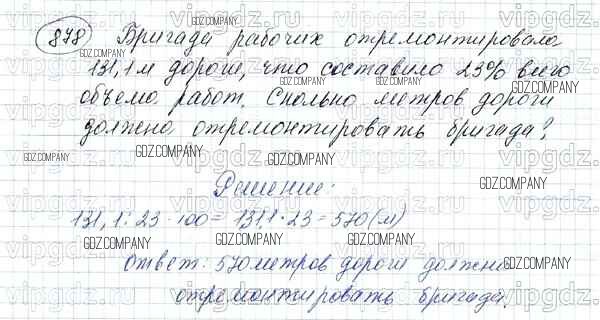 878 Бригада рабочих отремонтировала
131,1 м дороги, что составило 23% всего
объема работ. Сколько метров дороги
должна отремонтировать бригада?
Решение:
131,1 : 23 · 100 = 131,1 · 23 = 570 (м)
Ответ: 570 метров дороги должна
отремонтировать бригада.